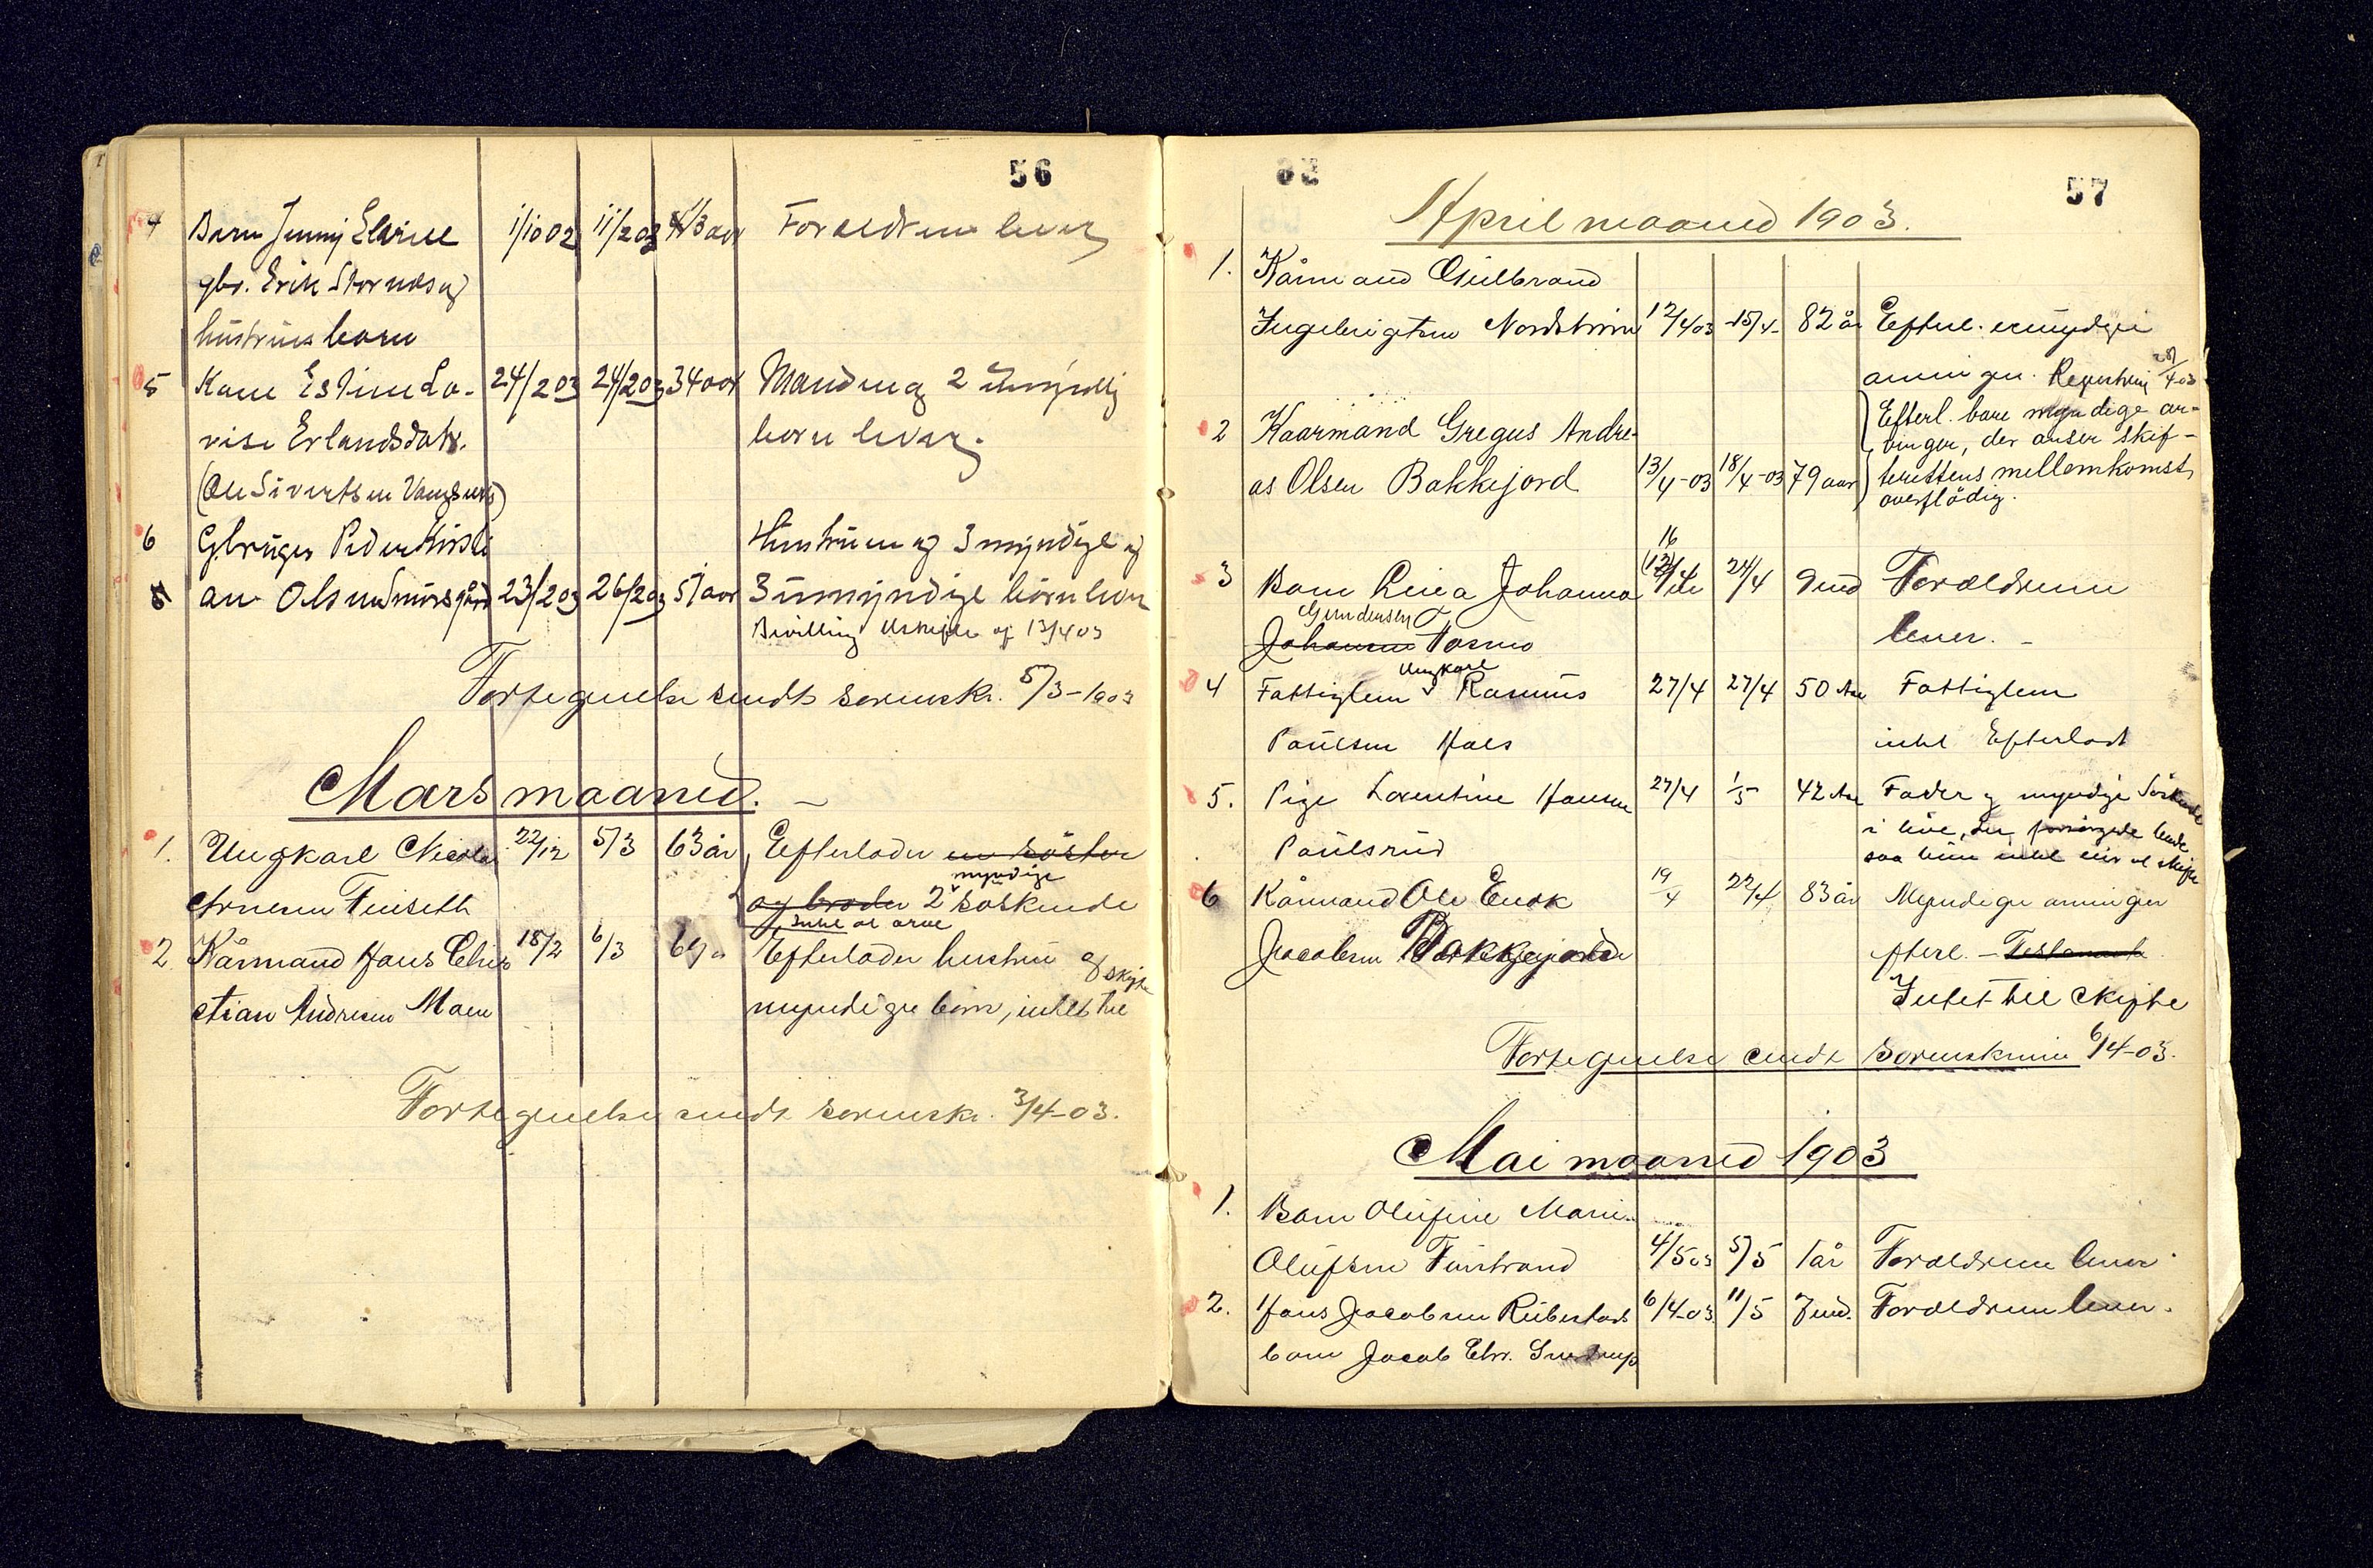 56
4 Barn Jenny Elvine 1/10 02 11/2 03 1/3 aar Forældrene lever
gbr. Erik Stornes og
hustrues barn
5 Kone Estine Lo- 24/2 03 24/2 03 34 aar Manden og 2 umyndig
vise Erlandsdatr. børn lever.
(Ole Sivertsen Vangsvik)
6 Gbruger Peder Kristi Hustruen og 3 myndige og
an Olsen 23/2 03 26/2 03 51 aar 3 umyndige børn lever
Bevilling 13/4 03
Fortegnelse sendt sorenskr. 5/3-1903
Mars maaned.
1. Ungkarl Nicolai 22/12 5/3 63 år Efterlader en søster
Arnesen Finseth og broder 2 myndige søskende
intet at arve
2. Kårmand Hans Chri 18/2 6/3 69 a Efterlader hustru og
stian Andresen Moen myndige børn, intet til skifte
Fortegnelse sendt sorenskr. 3/4-03.
57
April maaned 1903.
1. Kårmand Gulbrand
Ingebrigtsen Nordstrøm 12/4 03 15/4 82 år Efterl. myndige
arvinger. 28/4 03
2 Kaarmand Gregus Andre- Efterl. bare myndige ar-
vinger, der anser skif-
as Olsen Bakkejord 13/4-03 18/4-03 79 aar terettens mellemkomst
overflødig.
16
3 Barn Lina Johanna (12)/4 24/4 9 md Forældrene
Gundersen
Johansen Tørmo lever. -
Ungkarl
4 Fattiglem Rasmus 27/4 27/4 50 Aar Fattiglem
Paulsen Hals intet Efterladt
5. Pige Lorentine Hansen 27/4 1/5 42 Aar Fader og myndige Søskende
i live, der forsørgede hende
Paulsrud saa hun intet eier at skifte
6 Kårmand Ole Enok 19/4 22/4 83 år Myndige arvinger
Jacobsen Bakkejord efterl. - Testamente
Intet til skifte
Fortegnelse sendt sorenskriver 6/4-03.
Mai maaned 1903
1. Barn Olufine Marie
Olufsen Finstrand 4/5 03 5/5 1 år Forældrene lever
2. Hans Jacobsen Rubbestad 6/4-03 11/5 7 md. Forældrene lever.
barn Jacob Chr.